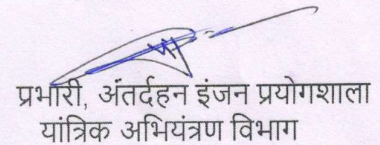 प्रभारी, अंतर्दहन इंजन प्रयोगशाला
यांत्रिक अभियंत्रण विभाग